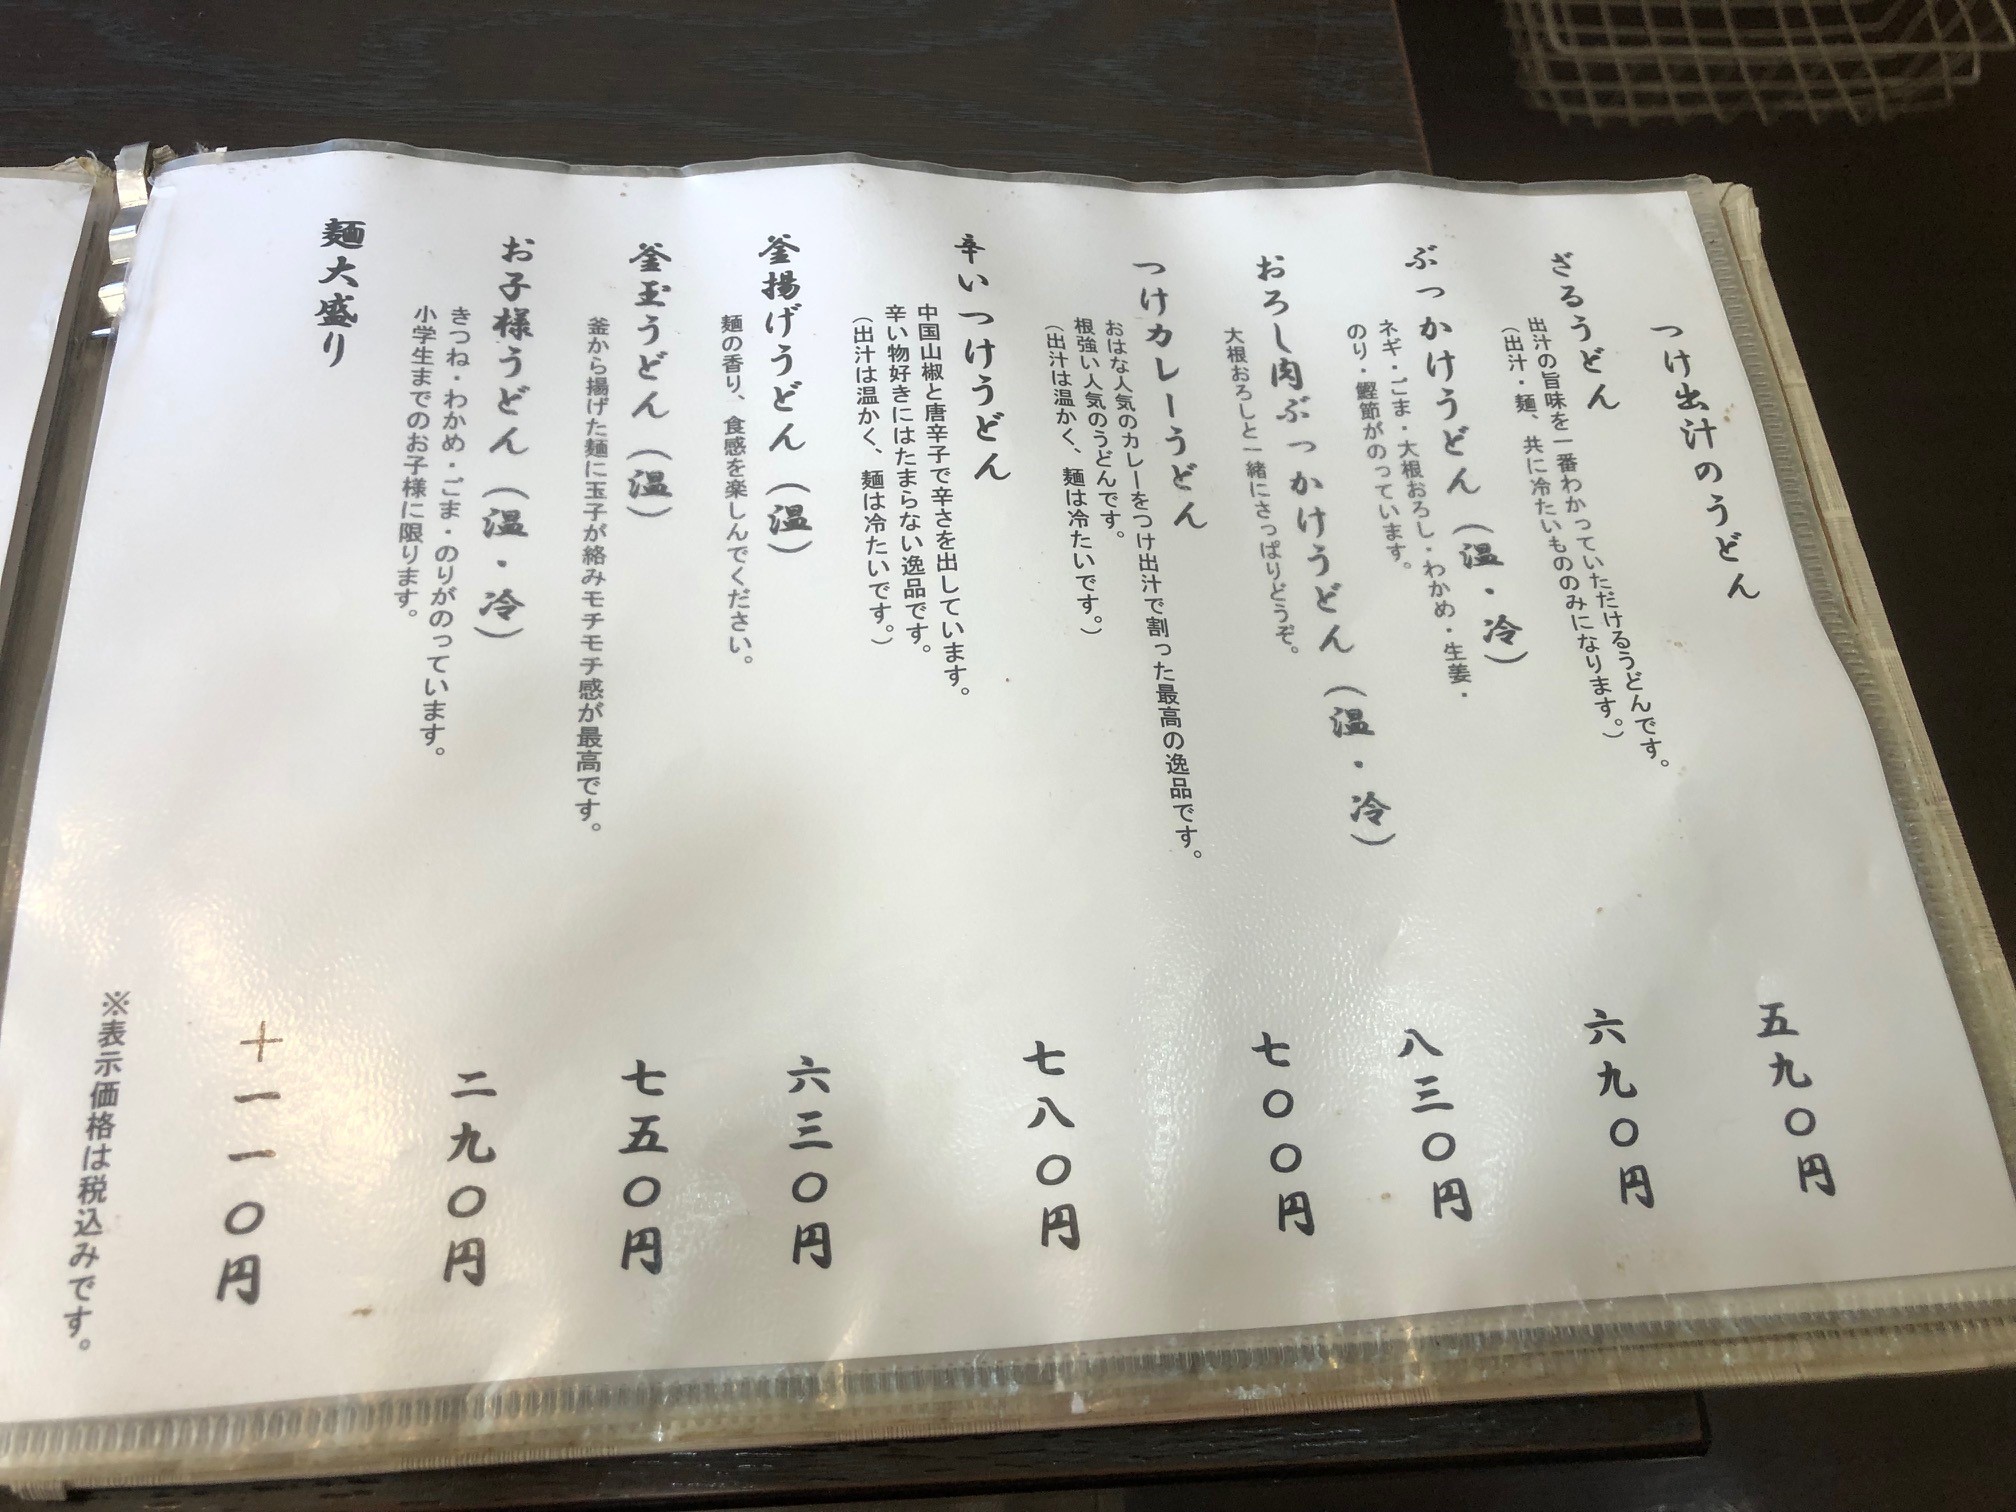 つけ出汁のうどん
ざるうどん
五九〇円
出汁の旨味を一番わかっていただけるうどんです。
（出汁・麺、共に冷たいもののみになります。）
ぶっかけうどん（温・冷）
六九〇円
ネギ・ごま・大根おろし・わかめ・生姜・
のり・鰹節がのっています。
おろし肉ぶっかけうどん（温・冷）
八三〇円
大根おろしと一緒にさっぱりどうぞ。
つけカレーうどん
七〇〇円
おはな人気のカレーをつけ出汁で割った最高の逸品です。
根強い人気のうどんです。
（出汁は温かく、麺は冷たいです。）
辛いつけうどん
七八〇円
中国山椒と唐辛子で辛さを出しています。
辛い物好きにはたまらない逸品です。
（出汁は温かく、麺は冷たいです。）
釜揚げうどん（温）
六三〇円
麺の香り、食感を楽しんでください。
釜玉うどん（温）
七五〇円
釜から揚げた麺に玉子が絡みモチモチ感が最高です。
お子様うどん（温・冷）
二九〇円
きつね・わかめ・ごま・のりがのっています。
小学生までのお子様に限ります。
麺大盛り
＋一一〇円
※表示価格は税込みです。